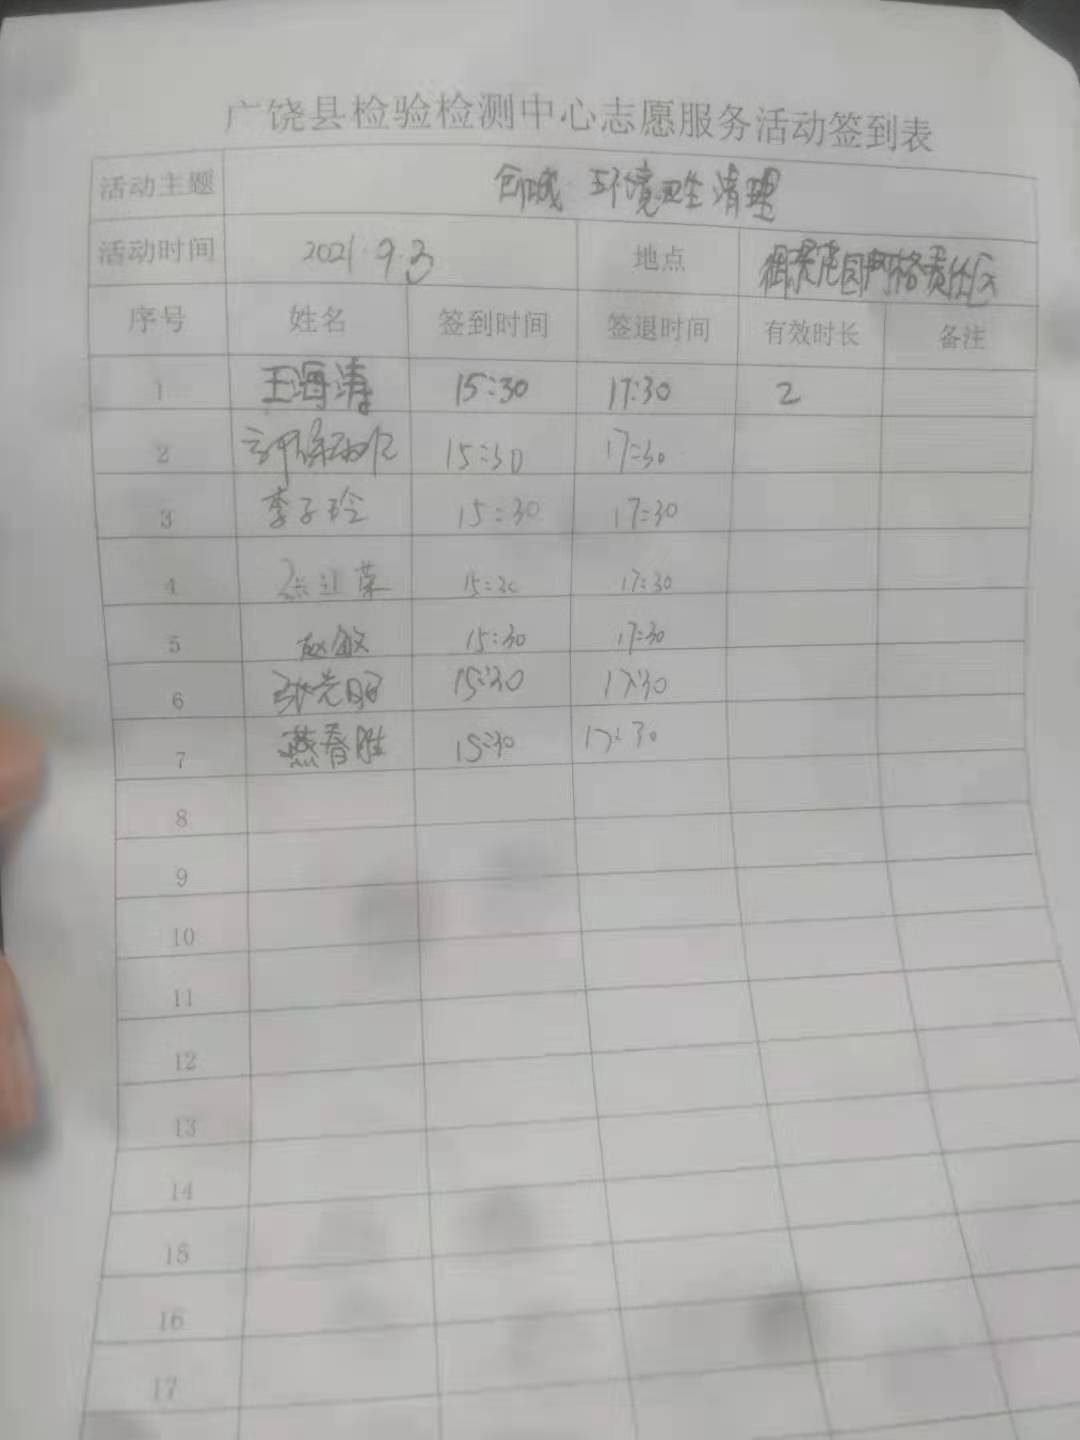 广饶县检验检测中心志愿服务活动签到表
活动主题 创城 环境卫生清理
活动时间 2021.9.3 地点 网格责任区
序号 姓名 签到时间 签退时间 有效时长 备注
1 王海清 15:30 17:30 2
2 15:30 17:30
3 李子玲 15:30 17:30
4 15:30 17:30
5 赵敏 15:30 17:30
6 张光明 15:30 17:30
7 燕春胜 15:30 17:30
8
9
10
11
12
13
14
15
16
17